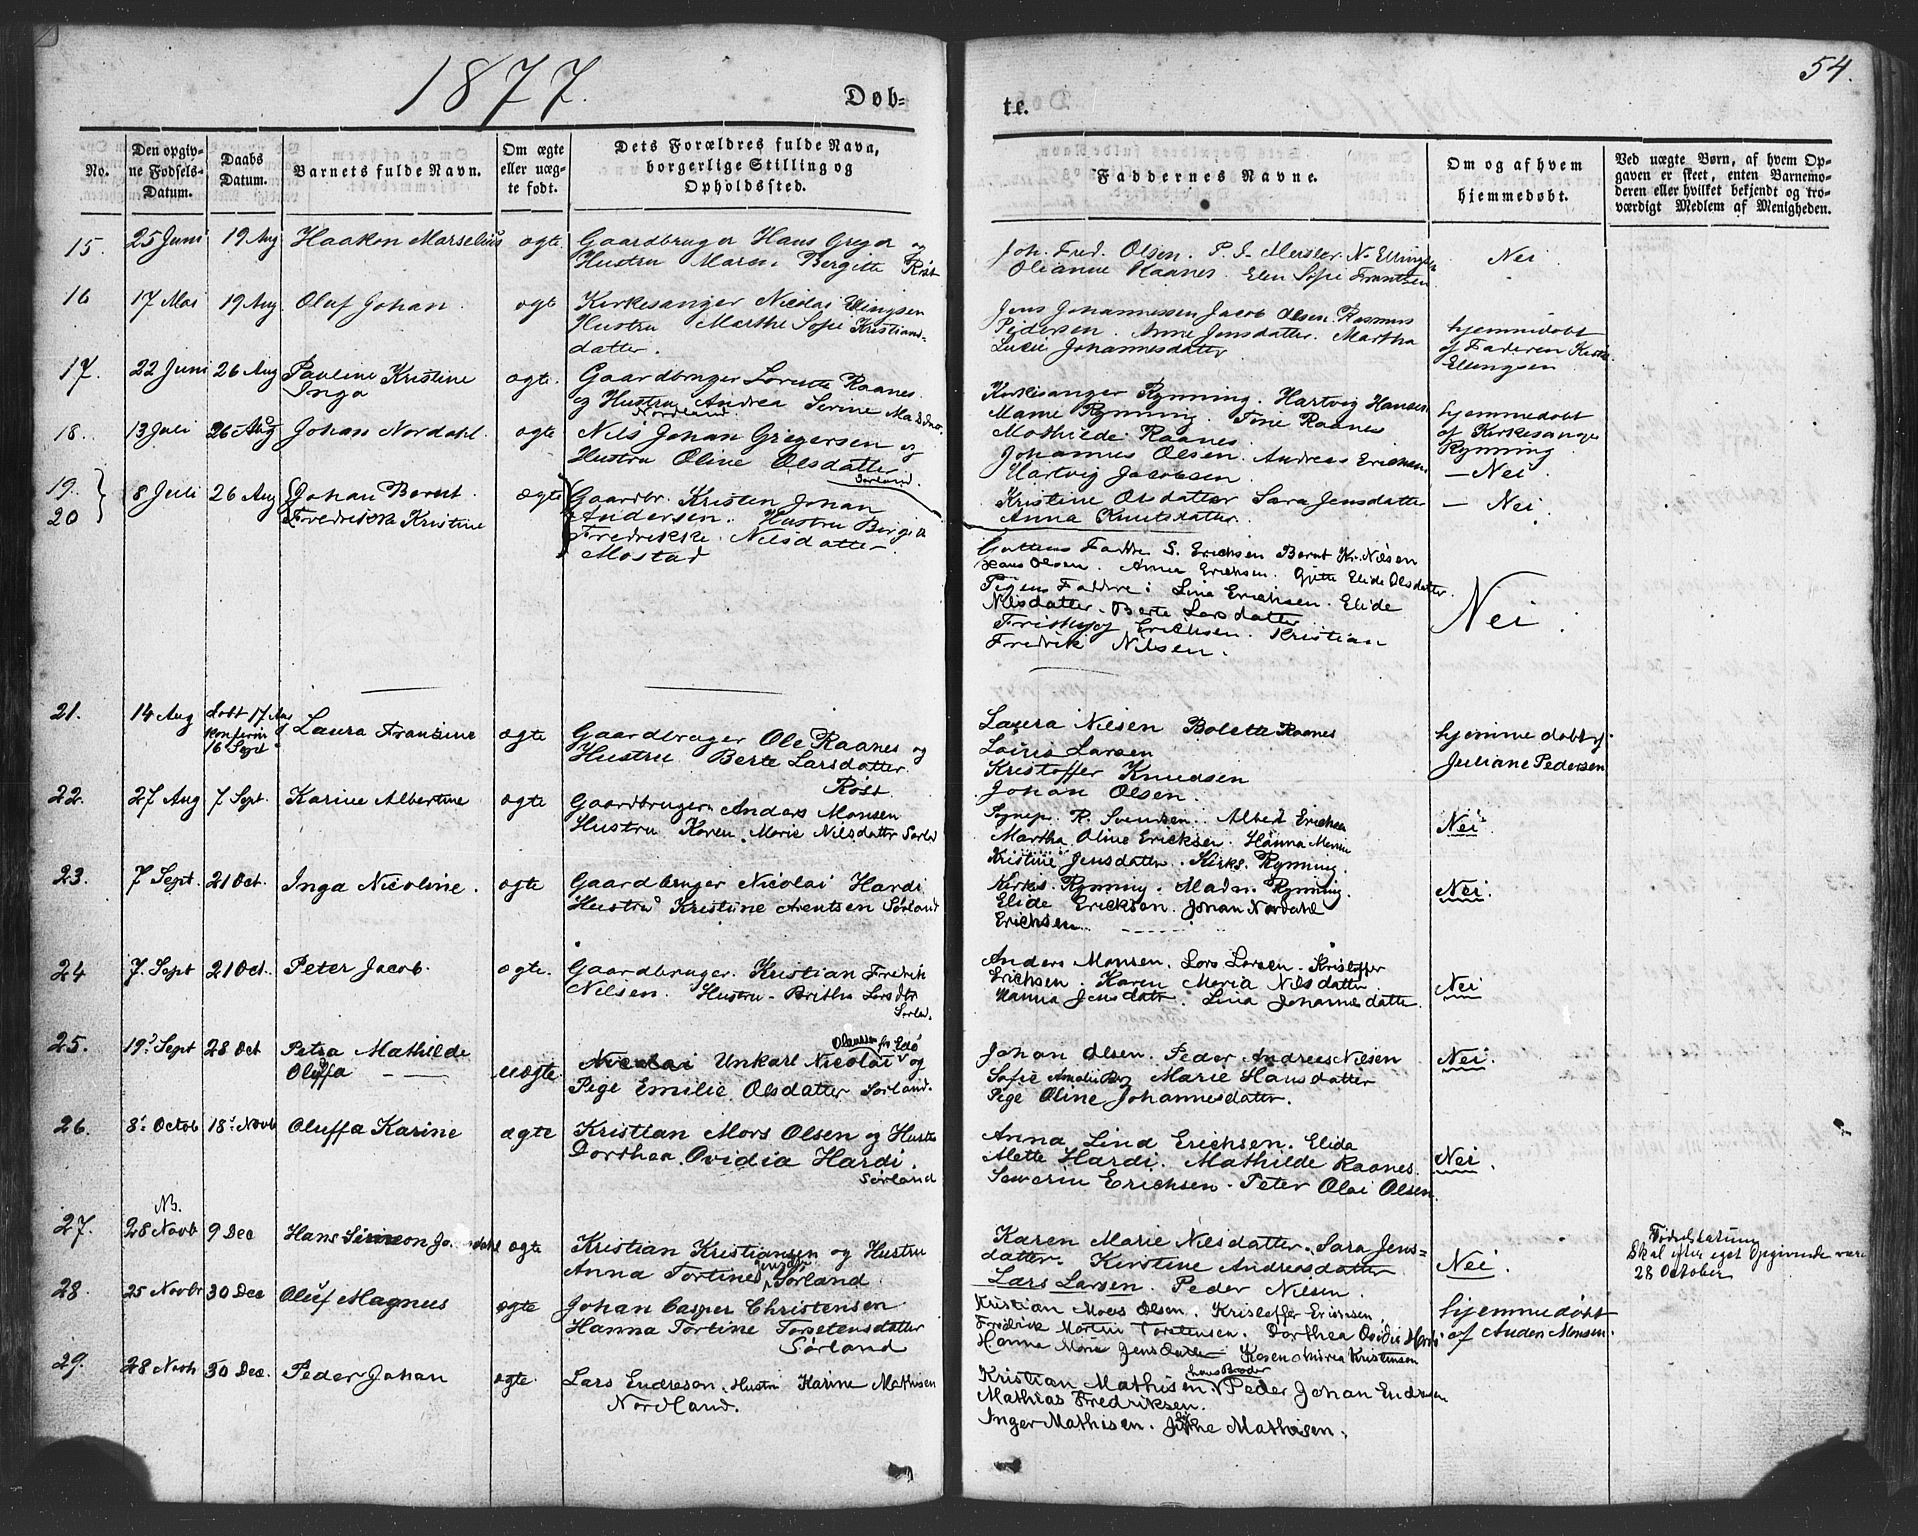 1877.
Døb-
te.
54.
No.
Den opgiv-
ne Fødsels-
Datum.
Daabs
Datum.
Barnets fulde Navn.
Om ægte
eller uæg-
te født.
Dets Forældres fulde Navn,
borgerlige Stilling og
Opholdssted.
Faddernes Navne.
Om og af hvem
hjemmedøbt.
Ved uægte Børn, af hvem Op-
gaven er skeet, enten Barnemo-
deren eller hvilket bekjendt og tro-
værdigt Medlem af Menigheden.
15. 25 Juni 19 Aug Haakon Marselius ægte. Gaardbruger Hans Greger og
Hustru Maren Bergitte Røst
Joh. Fred. Olsen. P. J. N.
Olianne Raanes. Elen Sofie Frantsen
Nei
16 17 Mai 19 Aug Oluf Johan ægte Kirkesanger Nicolai Elingsen
Hustru Marthe Sofie Kristians-
datter.
Jens Johannessen Jacob Olsen. Rasmus
Pedersen. Anne Jensdatter. Martha
Lucie Johannesdatter.
hjemmedøbt
af Faderen Kirks.
Elingsen
17. 22 Juni 26 Aug Pauline Kristine
Inga
ægte. Gaardbruger Raanes
og Hustru Andrea Serine
Kirkesanger Rynning. Hartvig Hansen
Rynning. Raanes
Mathilde Raanes.
hjemmedøbt
af Kirkesanger
Rynning.
18. 13 Juli 26 Aug Johan Nordahl. ægte Nils Johan Gregersen og
Nordland
Hustru Oline Olsdatter.
Sørland.
Johannes Olsen. Andreas Erichsen
Hartvig Jacobsen.
Kristine Olsdatter Sara Jensdatter
Anna Knutsdatter.
- Nei
- Nei.
19.
20
8 Juli 26 Aug Johan Bernt
Fredrikke Kristine
ægte Gaardbr. Kristen Johan
Andersen. Hustru Bergit
Fredrikke Nilsdatter
Mostad
Guttens Fadd: S. Erichsen Bernt Kr. Nilsen
Hans Olsen. Anna Erichsen. Gjette Elide Olsdatter.
Pigens Faddre: Lina Erichsen. Elide
Nilsdatter. Berte Larsdatter
Frithjof Erichsen. Kristian
Fredrik Nilsen.
Nei.
21. 14 Aug døbt 17 Aug
konferm
16 Sept
Laura Franzine ægte Gaardbruger Ole Raanes og
Hustru Berte Larsdatter
Røst.
Laura Nilsen Bolette Raanes
Larsen
Kristoffer Knudsen
Johan Olsen.
hjemme døbt af
Juliane Pedersen
22. 27 Aug 7 Sept. Karine Albertine ægte Gaardbruger Anders Monsen
Hustru Karen Marie Nilsdatter Sørld
Sognep. R. Svendsen. Albert Erichsen
Martha Oline Ericksen. Hanna
Kristine Jensdatter. Kirks. Rynning.
Nei
23. 7 Sept. 21 Oct. Inga Nicoline. ægte Gaardbruger Nicolai Hardi
Hustru Kristine Arentsen Sørland
Kirks Rynning. Madm. Rynning.
Elide Ericksen. Johan Nordahl
Erichsen.
Nei.
24 7. Sept 21 Oct. Peter Jacob. ægte. Gaardbruger. Kristian Fredrik
Nilsen. Hustru Britha Larsdtr
Sørland.
Anders Monsen. Lars Larsen. Kristoffer
Erichsen. Karen Maria Nilsdatter
Hanna Jensdatr. Lina Johannesdatter.
Nei
25. 19. Sept 28 Oct Petra Mathilde
Oluffa
uægte Unkarl Nicolai og
Pige Emilie Olsdatter Sørland.
Johan Olsen. Peder Andreas Nilsen
Sofie Marie Hansdatter
Pige Oline Johannesdatter.
Nei.
26. 8. Octob 18. Novb Oluffa Karine ægte Kristian Mors Olsen og Hustru
Dorthea Ovidia Hardi.
Sørland
Anna Lind Erichsen. Elida
Alette Hardi. Mathilde Raanes.
Severin Erichsen. Peter Olai Olsen.
Nei.
NB.
27. 28 Novb 9 Dec Hans Simon ægte Kristian Kristiansen og Hustru
Anna Tortine Sørland
Karen Marie Nilsdatter. Sara Jens-
datter. Kirstine Andreasdatter
Lars Larsen. Peder Nielsen.
Nei.
Fødselsdatum
Skal efter eget Opgivende være
28 October
28. 25 Novbr 30 Dec Oluf Magnus ægte Johan Casper Christensen
Hanna Tortine Torstensdatter
Sørland
Kristian Moes Olsen. Kristoffer Erichsen,
Fredrik Martin Torstensen. Dorthea Ovidie Hardi
Hanna Maria Jensdatter Karen Maria Kristensen
hjemmedøbt
af Anders Monsen.
29. 28 Novb 30 Dec. Peder Johan ægte. Lars Endresen. Hustru Karine Mathisen
Nordland.
Kristian Mathisen. Peder Johan Endresen
hans Broder
Mathias Fredriksen.
Inger Mathisen. Mathisen.